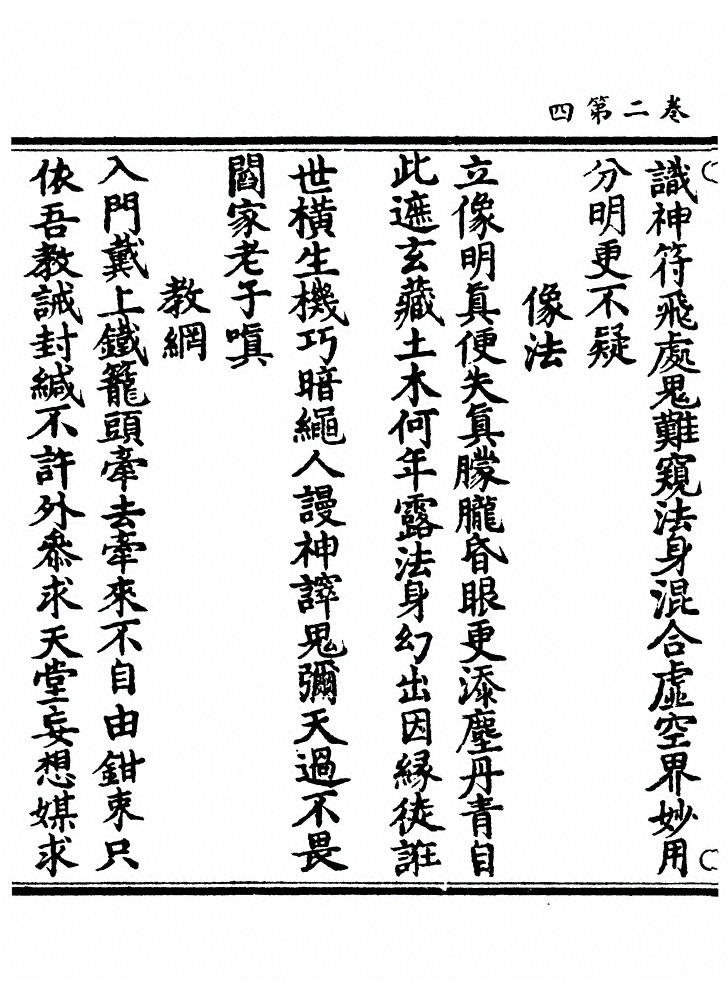 卷二第四
識神符飛處鬼難窺法身混合虛空界妙用
分明更不疑
像法
立像明眞便失眞朦朧昏眼更添塵丹青自
此遮玄藏土木何年露法身幻出因縁徒誑
世橫生機巧暗繩人謾神鬼彌天過不畏
閻家老子嗔
教網
入門戴上鐵籠頭牽去牽來不自由鉗束只
依吾教誡封緘不許外叅求天堂妄想媒求